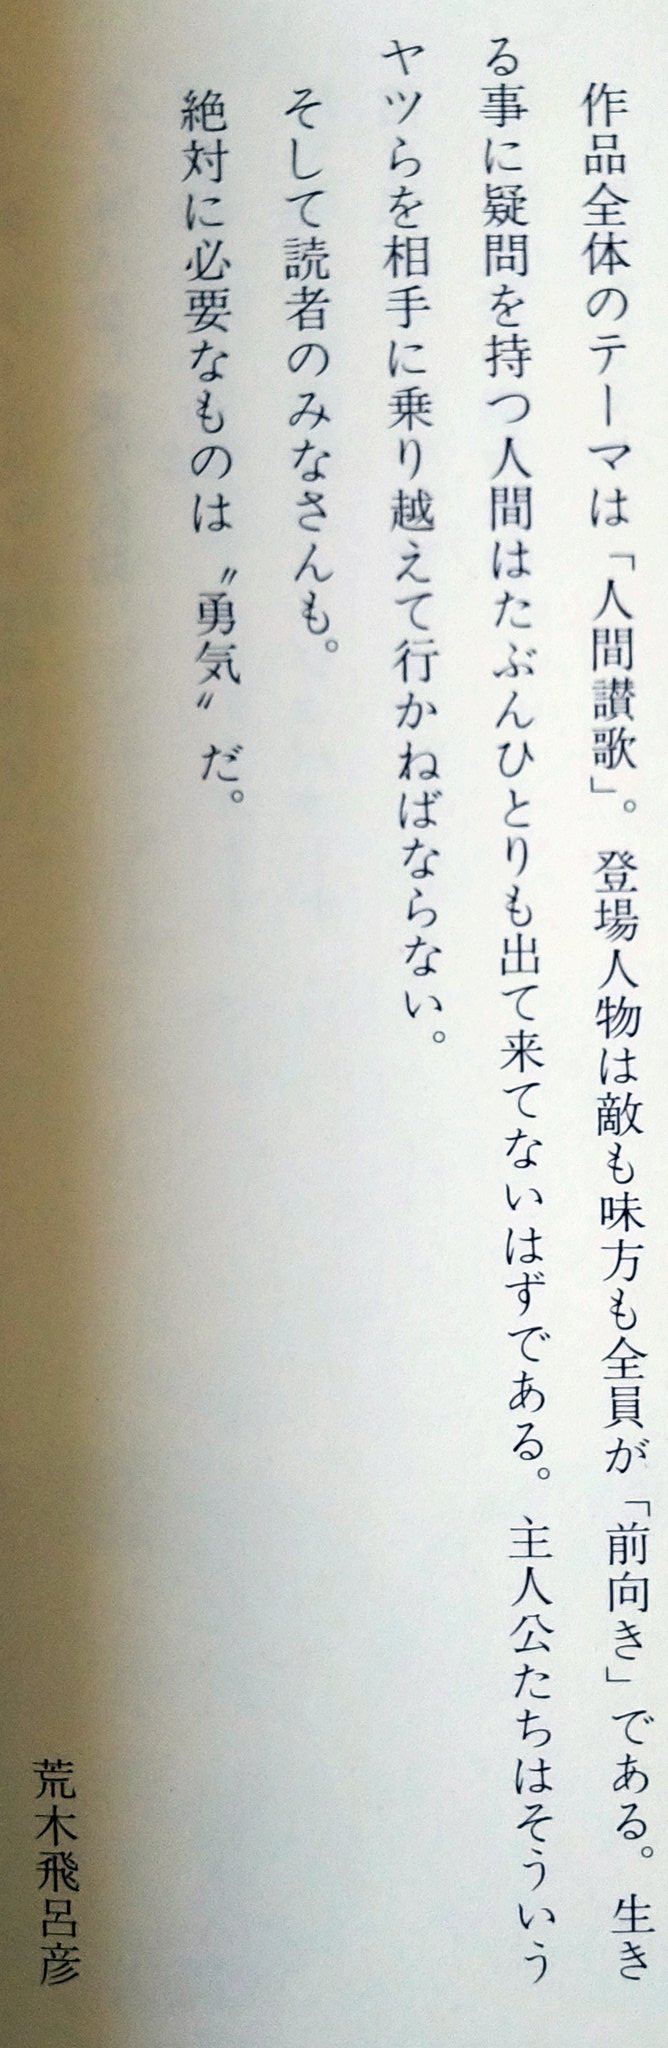 作品全体のテーマは「人間讃歌」。登場人物は敵も味方も全員が「前向き」である。生き
る事に疑問を持つ人間はたぶんひとりも出て来てないはずである。主人公たちはそういう
ヤツらを相手に乗り越えて行かねばならない。
そして読者のみなさんも。
絶対に必要なものは〝勇気〟だ。
荒木飛呂彦